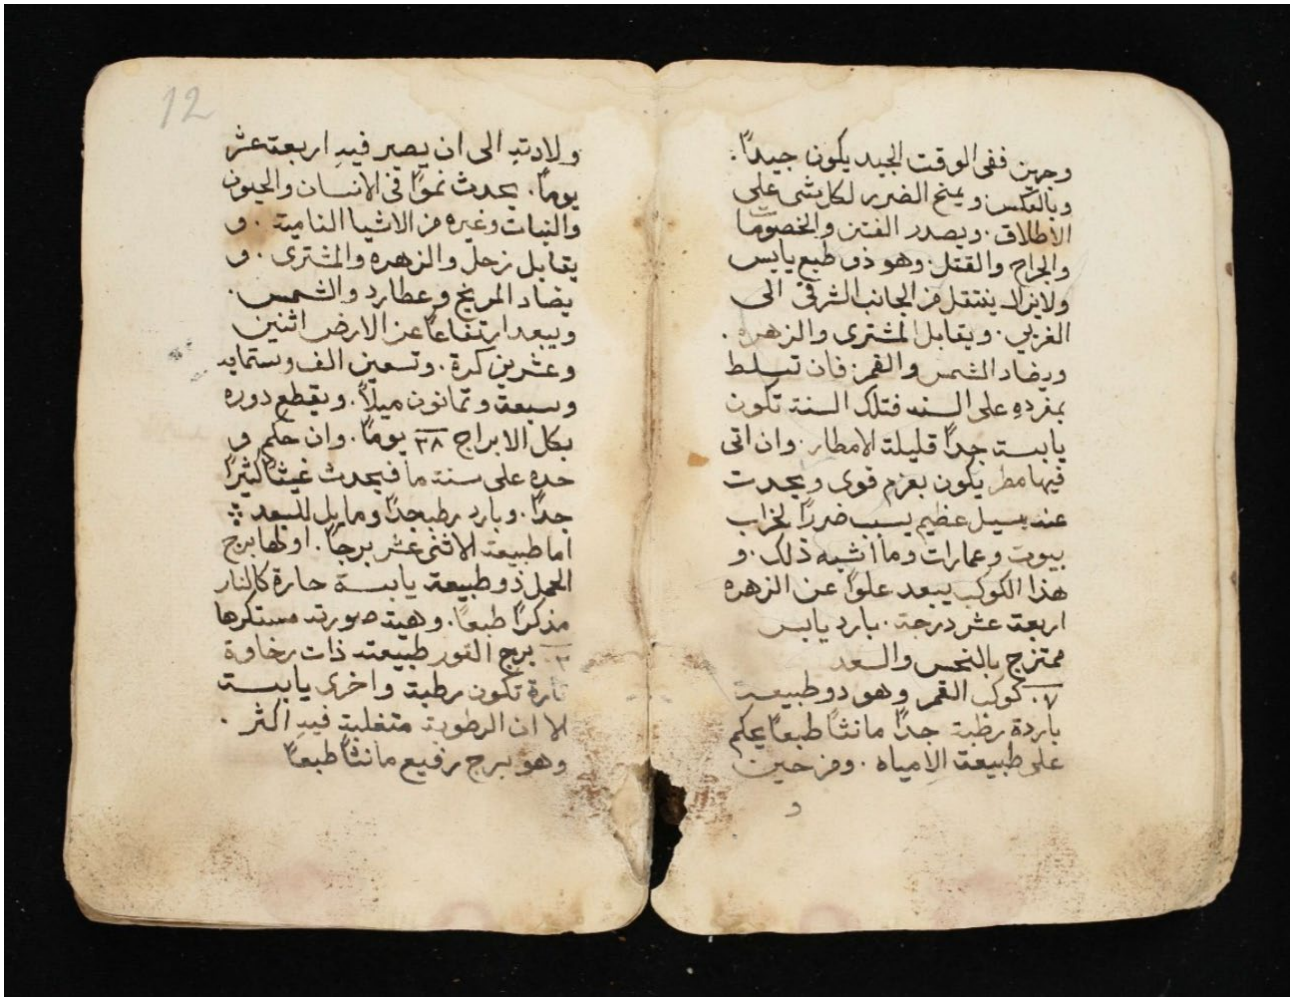 وجهين ففى الوقت الجيد يكون جيداً.
وبالعكس ويمنح الضرر لكل شى على
الاطلاق. ويصدر الفتن والخصومات
والجراح والقتل. وهو ذو طبع يابس
ولا يزال ينتقل من الجانب الشرقى الى
الغربي. ويقابل المشترى والزهره.
ويضاد الشمس والقمر: فان تسلط
بمفرده على السنه فتلك السنة تكون
يابسة جداً قليلة الامطار. وان اتى
فيها مطر يكون بعزم قوى ويحدث
عنه سيل عظيم يسبب ضرراً لخراب
بيوت وعمارات وما اشبه ذلك. و
هذا الكوكب يبعد علواً عن الزهره
اربعة عشر درجة. بارد يابس
ممتزج بالنحس والسعد
٧. كوكب القمر وهو ذو طبيعة
باردة رطبة جداً مانثاً طبعاً يحكم
على طبيعة الامياه. ومن حين
و
12
ولادته الى ان يصير فيه اربعة عشر
يوماً. يحدث نمواً فى الانسان والحيون
والنبات وغيره من الاشيا النامية. و
يقابل زحل والزهره والمشترى. و
يضاد المريخ وعطارد والشمس.
ويبعد ارتفاعاً عن الارض اثنين
وعشرين كرة. وتسعين الف وستمايه
وسبعة وثمانون ميلاً. ويقطع دوره
بكل الابراج ٢٨ يوماً. وان حكم و
حده على سنة ما فيحدث غيثاً كثيراً
جداً. وبارد رطب جداً ومايل للسعد
اما طبيعة الاثنى عشر برجاً. اولها برج
الحمل ذو طبيعة يابسة حارة كالنار
مذكراً طبعاً. وهية صورته مستكرها
٢. برج الثور طبيعته ذات رخاوة
تارة تكون رطبة واخرى يابسة
الا ان الرطوبة متغلبة فيه اكثر.
وهو برج رفيع مانثاً طبعاً